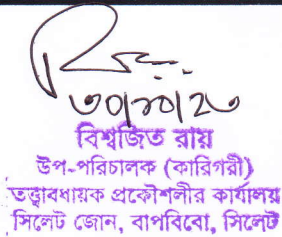 ৩০/১০/২৩
বিশ্বজিত রায়
উপ-পরিচালক (কারিগরী)
তত্ত্বাবধায়ক প্রকৌশলীর কার্যালয়
সিলেট জোন, বাপবিবো, সিলেট